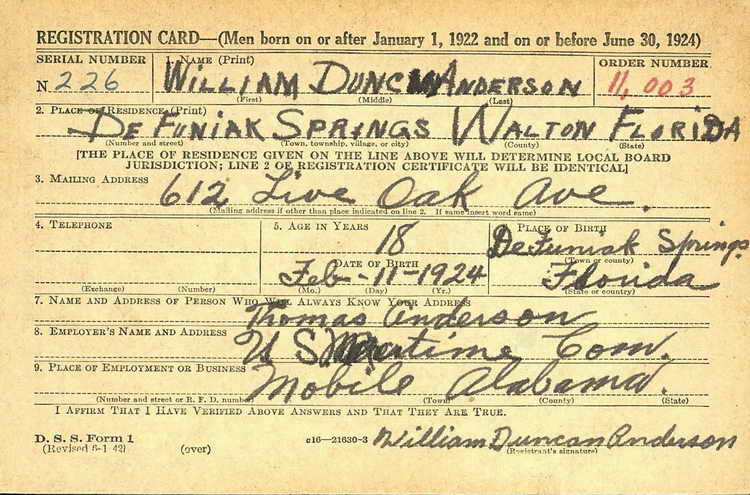 REGISTRATION CARD—(Men born on or after January 1, 1922 and on or before June 30, 1924)
SERIAL NUMBER 1. NAME (Print) ORDER NUMBER
N 226 WILLIAM DUNCAN ANDERSON 11,003
(First) (Middle) (Last)
2. PLACE OF RESIDENCE (Print)
DE FUNIAK SPRINGS WALTON FLORIDA
(Number and street) (Town, township, village, or city) (County) (State)
[THE PLACE OF RESIDENCE GIVEN ON THE LINE ABOVE WILL DETERMINE LOCAL BOARD
JURISDICTION; LINE 2 OF REGISTRATION CERTIFICATE WILL BE IDENTICAL]
3. MAILING ADDRESS
612 Live Oak Ave.
(Mailing address if other than place indicated on line 2. If same insert word same)
4. TELEPHONE 5. AGE IN YEARS PLACE OF BIRTH
18 DeFuniak Springs
(Town or county)
DATE OF BIRTH
Feb-11-1924 Florida
(Exchange) (Number) (Mo.) (Day) (Yr.) (State or country)
7. NAME AND ADDRESS OF PERSON WHO WILL ALWAYS KNOW YOUR ADDRESS
Thomas Anderson
8. EMPLOYER'S NAME AND ADDRESS
U S Maritime Com.
9. PLACE OF EMPLOYMENT OR BUSINESS
Mobile Alabama.
(Number and street or R. F. D. number) (Town) (County) (State)
I AFFIRM THAT I HAVE VERIFIED ABOVE ANSWERS AND THAT THEY ARE TRUE.
D. S. S. Form 1
(Revised 6-1-42) (over) c16—21630-3 William Duncan Anderson
(Registrant's signature)